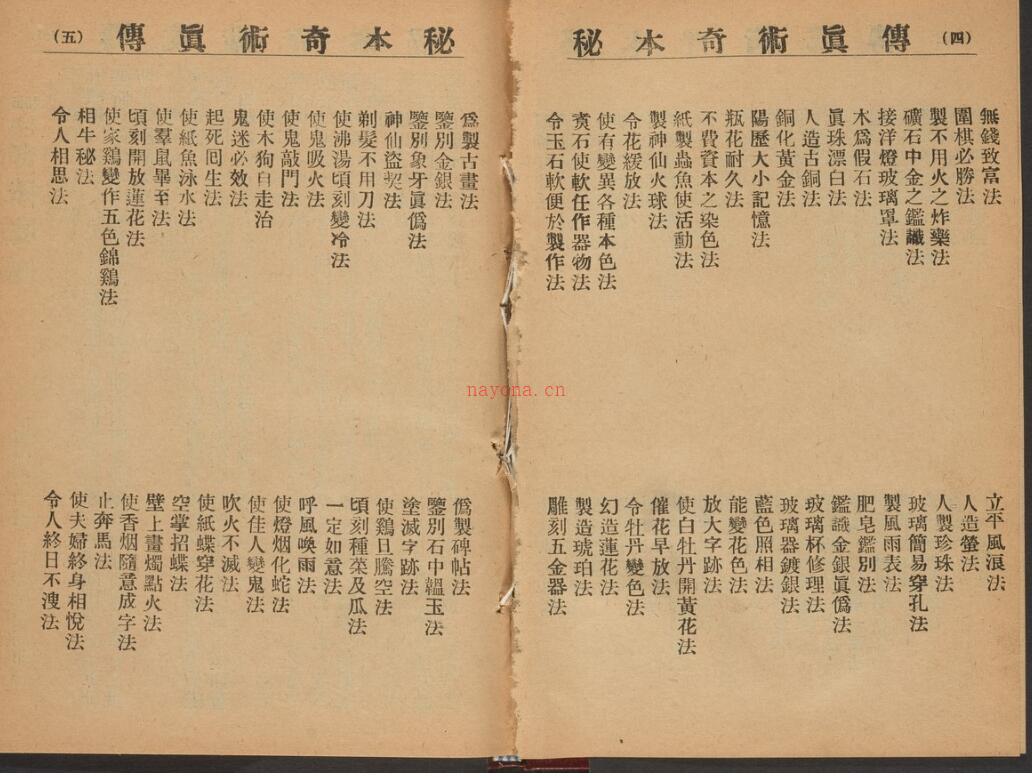 傳眞術奇本秘
(四)
無錢致富法
圍棋必勝法
製不用火之炸藥法
礦石中金之鑑識法
接洋燈玻璃罩法
木爲假石法
眞珠漂白法
人造古銅法
銅化黃金法
陽歷大小記憶法
瓶花耐久法
不費資本之染色法
紙製蟲魚使活動法
製神仙火球法
令花緩放法
使有變異各種本色法
賓石使軟任作器物法
令玉石軟便於製作法
立平風浪法
人造螢法
人製珍珠法
玻璃簡易穿孔法
製風雨表法
肥皂鑑別法
鑑識金銀眞僞法
玻璃杯修理法
玻璃器鍍銀法
藍色照相法
能變花色法
放大字跡法
使白牡丹開黃花法
催花早放法
令牡丹變色法
幻造蓮花法
製造琥珀法
雕刻五金器法
秘本奇術眞傳
(五)
僞製古畫法
鑒別金銀法
鑒別象牙眞僞法
神仙盜契法
剃髮不用刀法
使沸湯頃刻變冷法
使鬼吸火法
使鬼敲門法
使木狗自走法
鬼迷必效法
起死回生法
使紙魚泳水法
使羣鼠畢至法
頃刻開放蓮花法
使家鷄變作五色錦鷄法
相牛秘法
令人相思法
僞製碑帖法
鑒別石中韞玉法
塗滅字跡法
使鷄旦騰空法
頃刻種菜及瓜法
一定如意法
呼風喚雨法
使燈烟化蛇法
使佳人變鬼法
吹火不滅法
使紙蝶穿花法
空掌招蝶法
壁上畫燭點火法
使香烟隨意成字法
止奔馬法
使夫婦終身相悅法
令人終日不溲法
nayona.cn